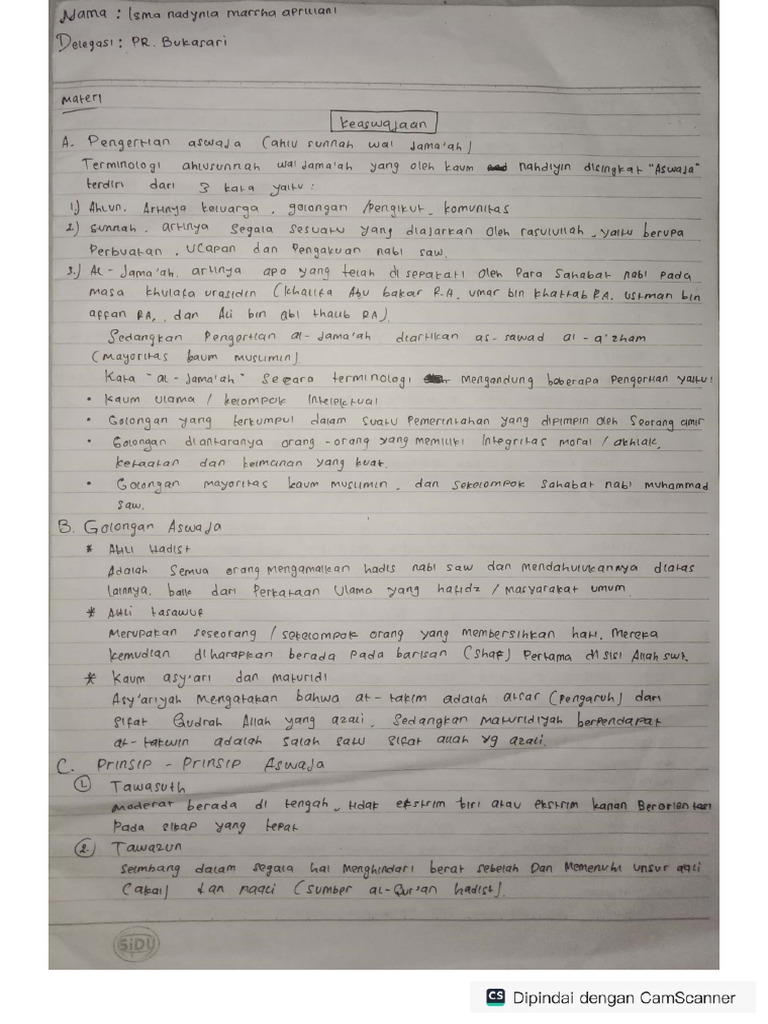 Nama : Isma nadynia marsha apriliani
Delegasi : PR. Bukasari
Materi
Keaswajaan
A. Pengertian aswaja (ahlu sunnah wal Jama'ah)
Terminologi ahlusunnah wal Jama'ah yang oleh kaum nahdiyin disingkat "Aswaja"
terdiri dari 3 kata yaitu :
1.) Ahlun. Artinya keluarga, golongan /pengikut, komunitas
2.) Sunnah. artinya segala sesuatu yang diajarkan oleh rasulullah, yaitu berupa
Perbuatan, Ucapan dan Pengakuan nabi saw.
3.) Al-Jama'ah. artinya apa yang telah di sepakati oleh Para Sahabat nabi pada
masa khulafa urasidin (khalifa Abu bakar R.A, umar bin khattab RA. ustman bin
affan RA, dan Ali bin abi thalib RA).
Sedangkan Pengertian al-Jama'ah diartikan as-sawad al-a'zham
(mayoritas baum muslimin)
Kata "al-Jama'ah" Secara terminologi mengandung beberapa Pengertian yaitu:
• Kaum ulama / kelompok Intelektual
• Golongan yang terkumpul dalam suatu Pemerintahan yang dipimpin oleh Seorang amir
• Golongan diantaranya orang-orang yang memiliki Integritas moral / akhlak,
ketaatan dan keimanan yang kuat.
• Golongan mayoritas kaum muslimin, dan sekelompok sahabat nabi muhammad
saw.
B. Golongan Aswaja
* Ahli Hadist
Adalah Semua orang mengamalkan hadis nabi saw dan mendahulukannya diatas
lainnya, baik dari Perkataan Ulama yang hafidz / masyarakat umum
* Ahli tasawuf
Merupakan seseorang / sekelompok orang yang membersihkan hati, mereka
kemudian diharapkan berada Pada barisan (shaf) Pertama di sisi Allah swt.
* Kaum asy'ari dan maturidi
Asy'ariyah mengatakan bahwa at-takim adalah atsar (pengaruh) dari
sifat Qudrah Allah yang azali, Sedangkan maturidiyah berpendapat
at-takwin adalah salah satu sifat allah yg azali.
C. Prinsip - Prinsip Aswaja
1. Tawasuth
Moderat berada di tengah, tidak ekstrim kiri atau ekstrim kanan Berorientasi
Pada sikap yang tepat
2. Tawazun
Seimbang dalam segala hal menghindari berat sebelah Dan Memenuhi unsur aqli
(akal) dan naqli (sumber al-Qur'an hadist).
SiDU
CS Dipindai dengan CamScanner